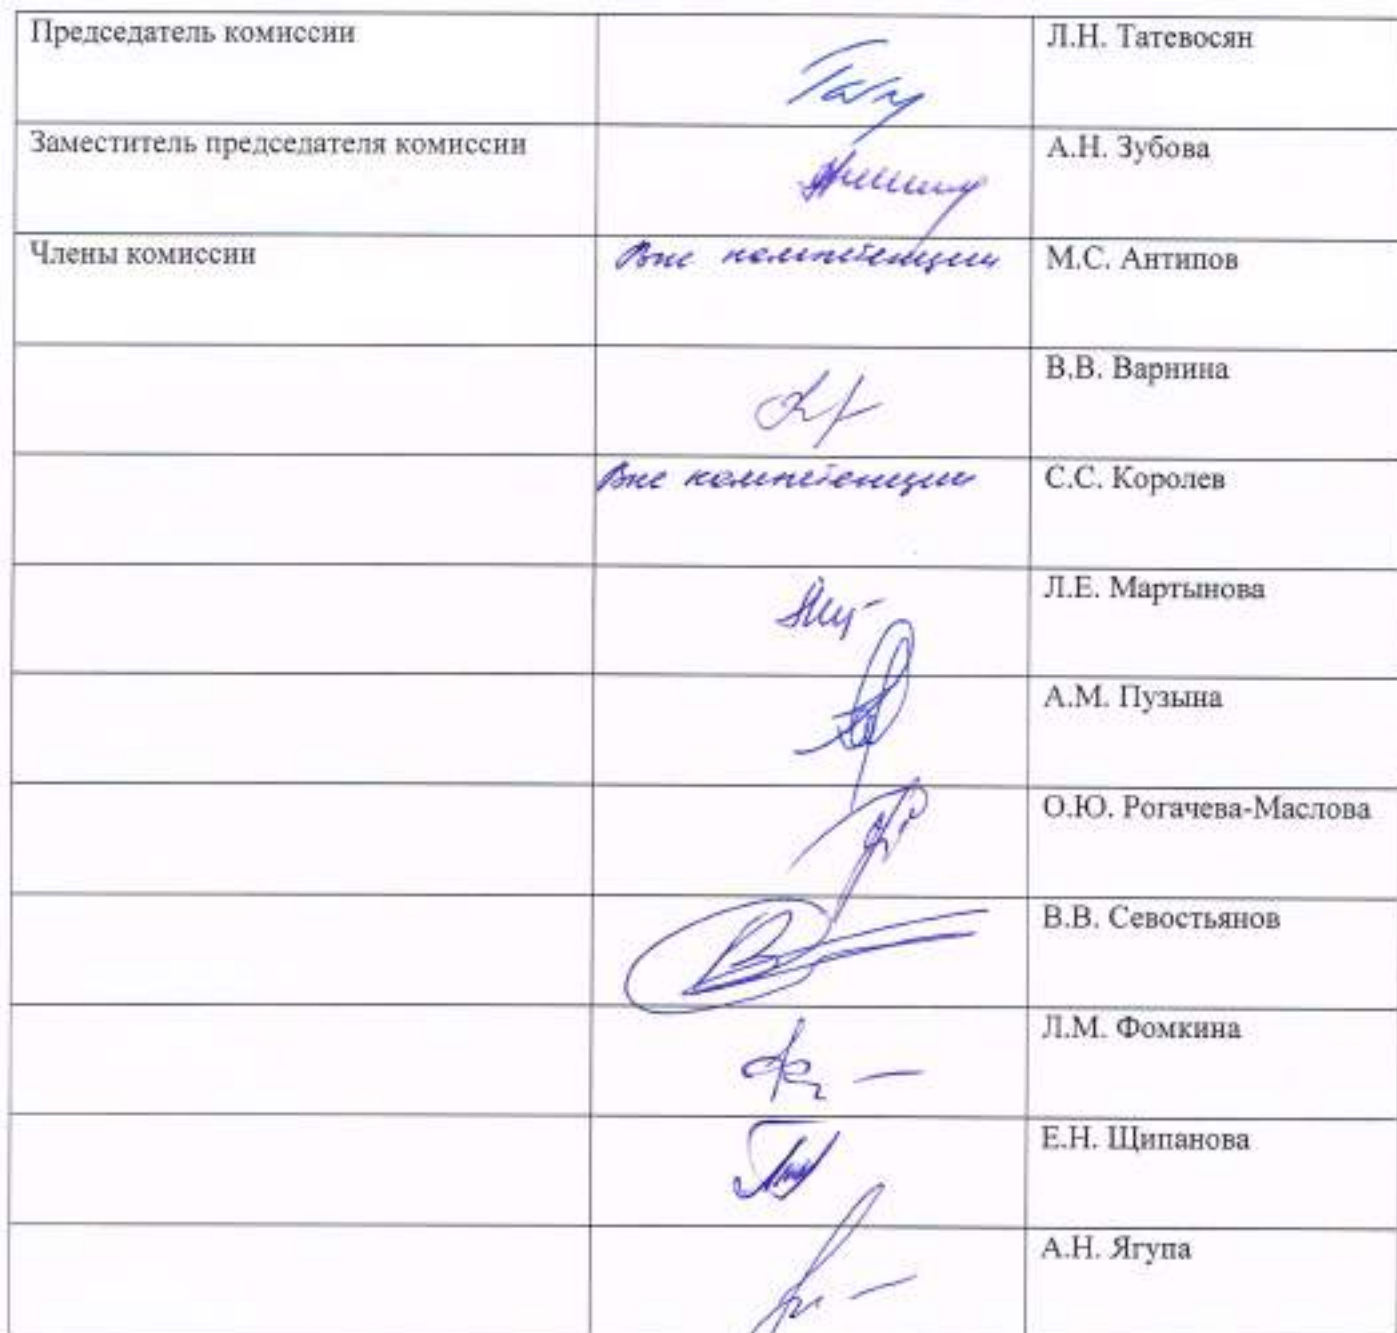 Председатель комиссии Л.Н. Татевосян
Заместитель председателя комиссии А.Н. Зубова
Члены комиссии Вне компетенции М.С. Антипов
В.В. Варнина
Вне компетенции С.С. Королев
Л.Е. Мартынова
А.М. Пузына
О.Ю. Рогачева-Маслова
В.В. Севостьянов
Л.М. Фомкина
Е.Н. Щипанова
А.Н. Ягупа